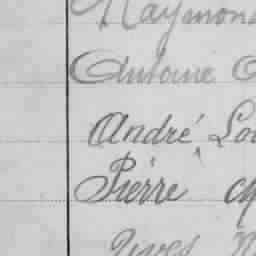 Raymond
Antoine
André, Lou
Pierre
Yves